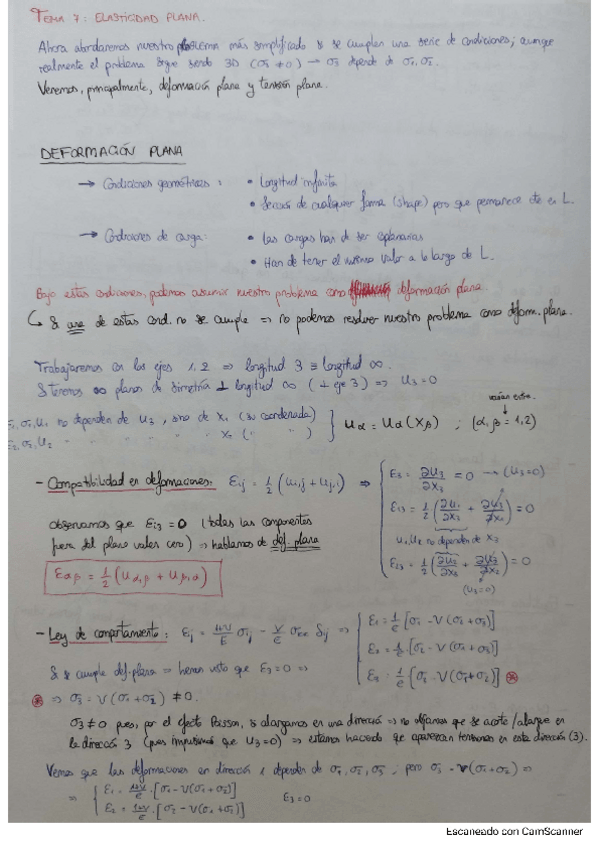 TEMA 7: ELASTICIDAD PLANA.
Ahora abordaremos nuestro problema más simplificado si se cumplen una serie de condiciones; aunque
realmente el problema sigue siendo 3D (σ3 ≠ 0) → σ3 depende de σ1, σ2.
Veremos, principalmente, deformación plana y tensión plana.
DEFORMACIÓN PLANA
→ Condiciones geométricas: • Longitud infinita
• Sección de cualquier forma (shape) pero que permanece cte en L.
→ Condiciones de carga: • Las cargas han de ser coplanarias
• Han de tener el mismo valor a lo largo de L.
Bajo estas condiciones, podemos asumir nuestro problema como deformación plana.
↳ Si una de estas cond. no se cumple ⇒ no podemos resolver nuestro problema como deform. plana.
Trabajaremos en los ejes 1, 2 ⇒ longitud 3 ≡ longitud ∞.
Si tenemos ∞ planos de simetría ⊥ longitud ∞ (⊥ eje 3) ⇒ u3 = 0
varían entre
ε1, σ1, u1 no dependen de u3, sino de x1 (su coordenada)
ε2, σ2, u2 " " " " x2 ( " ) } uα = uα(xβ) ; (α, β = 1,2)
- Compatibilidad en deformaciones: εij = 1/2 (ui,j + uj,i) ⇒
ε3 = ∂u3/∂x3 = 0 → (u3=0)
ε13 = 1/2 (∂u1/∂x3 + ∂u3/∂x1) = 0
u1, u2 no dependen de x3
ε23 = 1/2 (∂u2/∂x3 + ∂u3/∂x2) = 0
(u3=0)
observamos que εi3 = 0 (todas las componentes
fuera del plano valen cero) ⇒ hablamos de def. plana
εαβ = 1/2 (uα,β + uβ,α)
- Ley de comportamiento: εij = 1+ν/E σij - ν/E σkk δij ⇒
ε1 = 1/E [σ1 - ν(σ2 + σ3)]
ε2 = 1/E · [σ2 - ν(σ1 + σ3)]
ε3 = 1/E · [σ3 - ν(σ1 + σ2)] ⊛
Si se cumple def. plana ⇒ hemos visto que ε3 = 0 ⇒
⊛ ⇒ σ3 = ν(σ1 + σ2) ≠ 0.
σ3 ≠ 0 pues, por el efecto Poisson, si alargamos en una dirección ⇒ no dejamos que se acorte/alargue en
la dirección 3 (pues impusimos que u3=0) ⇒ estamos haciendo que aparezcan tensiones en esta dirección (3).
Vemos que las deformaciones en dirección 1 dependen de σ1, σ2, σ3; pero σ3 = ν(σ1 + σ2) ⇒
⇒ ε1 = 1+ν/E · [σ1 - ν(σ1 + σ2)]
ε2 = 1+ν/E · [σ2 - ν(σ1 + σ2)] ε3 = 0
Escaneado con CamScanner